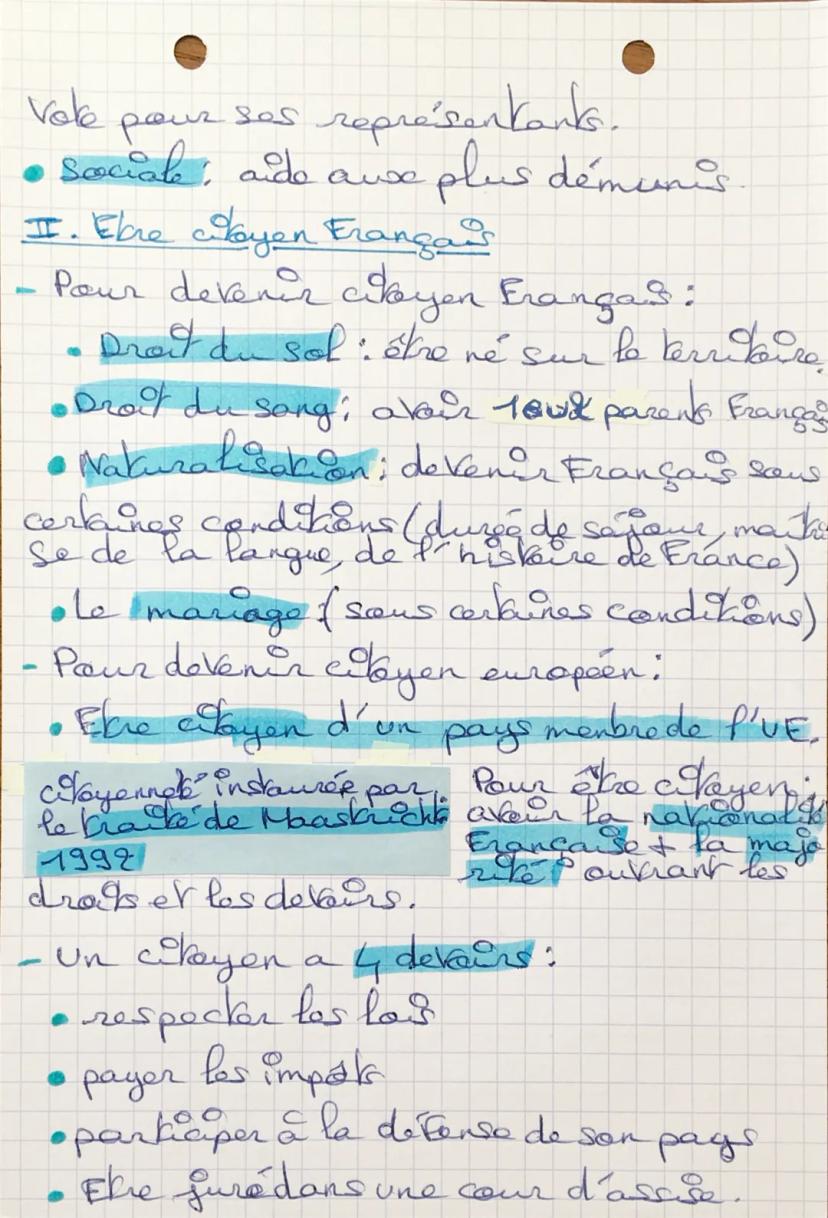 Vote pour ses représentants.
• Sociale : aide aux plus démunis.
II. Etre citoyen Français
- Pour devenir citoyen Français :
• Droit du sol : être né sur le territoire.
• Droit du sang : avoir parents Français
• Naturalisation : devenir Français sous
certaines conditions (durée de séjour, maitri
se de la langue, de l'histoire de France)
• Le mariage (sous certaines conditions)
- Pour devenir citoyen européen :
• Etre citoyen d'un pays menbre de l'UE.
citoyenneté instaurée par
le traité de Maastricht
1992
Pour être citoyen :
avoir la nationalité
Française + la majo
rité ouvrant les
droits et les devoirs.
- Un citoyen a 4 devoirs :
• respecter les lois
• payer les impôts
• participer à la défense de son pays
• Etre juré dans une cour d'assise.